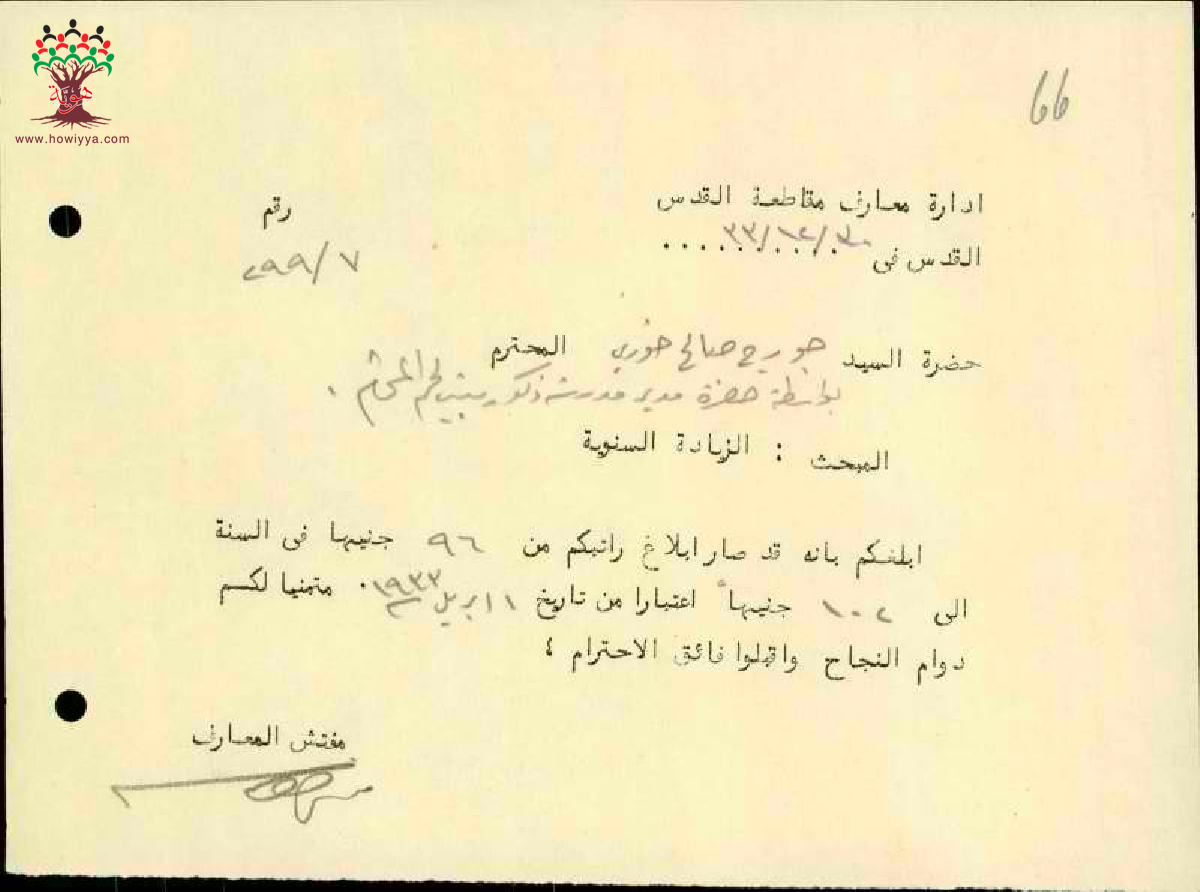 هوية
www.howiyya.com
66
ادارة معارف مقاطعة القدس
رقم
القدس فى ٣٠/١٢/٣٣
٧/٢٩٩
حضرة السيد جورج صالح خوري المحترم
بواسطة حضرة مدير مدرسة ذكور بيت لحم المحترم .
المبحث : الزيادة السنوية
ابلغكم بانه قد صار ابلاغ راتبكم من ٩٦ جنيها فى السنة
الى ١٠٢ جنيهاً اعتبارا من تاريخ ١ ابريل ١٩٣٣ . متمنيا لكم
دوام النجاح واقبلوا فائق الاحترام ؛
مفتش المعارف